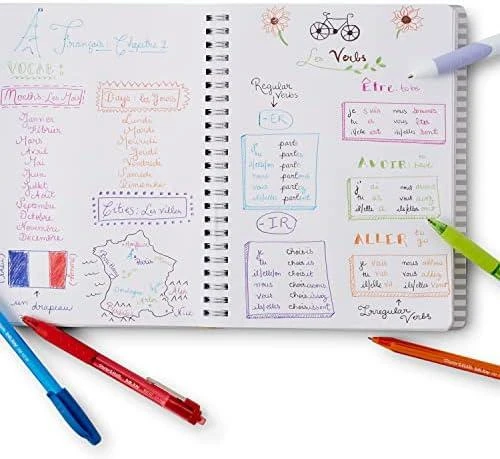 Français: Chapitre 2
VOCAB:
Months: Les Mois
Janvier
Février
Mars
Avril
Mai
Juin
Juillet
Août
Septembre
Octobre
Novembre
Décembre
Days: les Jours
Lundi
Mardi
Mercredi
Jeudi
Vendredi
Samedi
Dimanche
Cities: Les villes
Paris
Nice
un drapeau
Les Verbs
Regular
Verbs
-ER
je parts
tu partes
il/elle
nous partons
vous partez
ils/elles partent
-IR
je choisis
tu choisis
il/elle/on choisit
nous choisissons
vous choisissez
ils/elles choisissent
Être: to be
je suis nous sommes
tu es vous êtes
il/elle est ils/elles sont
AVOIR: to have
j' ai nous avons
tu as vous avez
il/elle a ils/elles ont
ALLER: to go
je vais nous allons
tu vas vous allez
il/elle va ils/elles vont
Irregular
Verbs
PaperMate InkJoy
PaperMate InkJoy